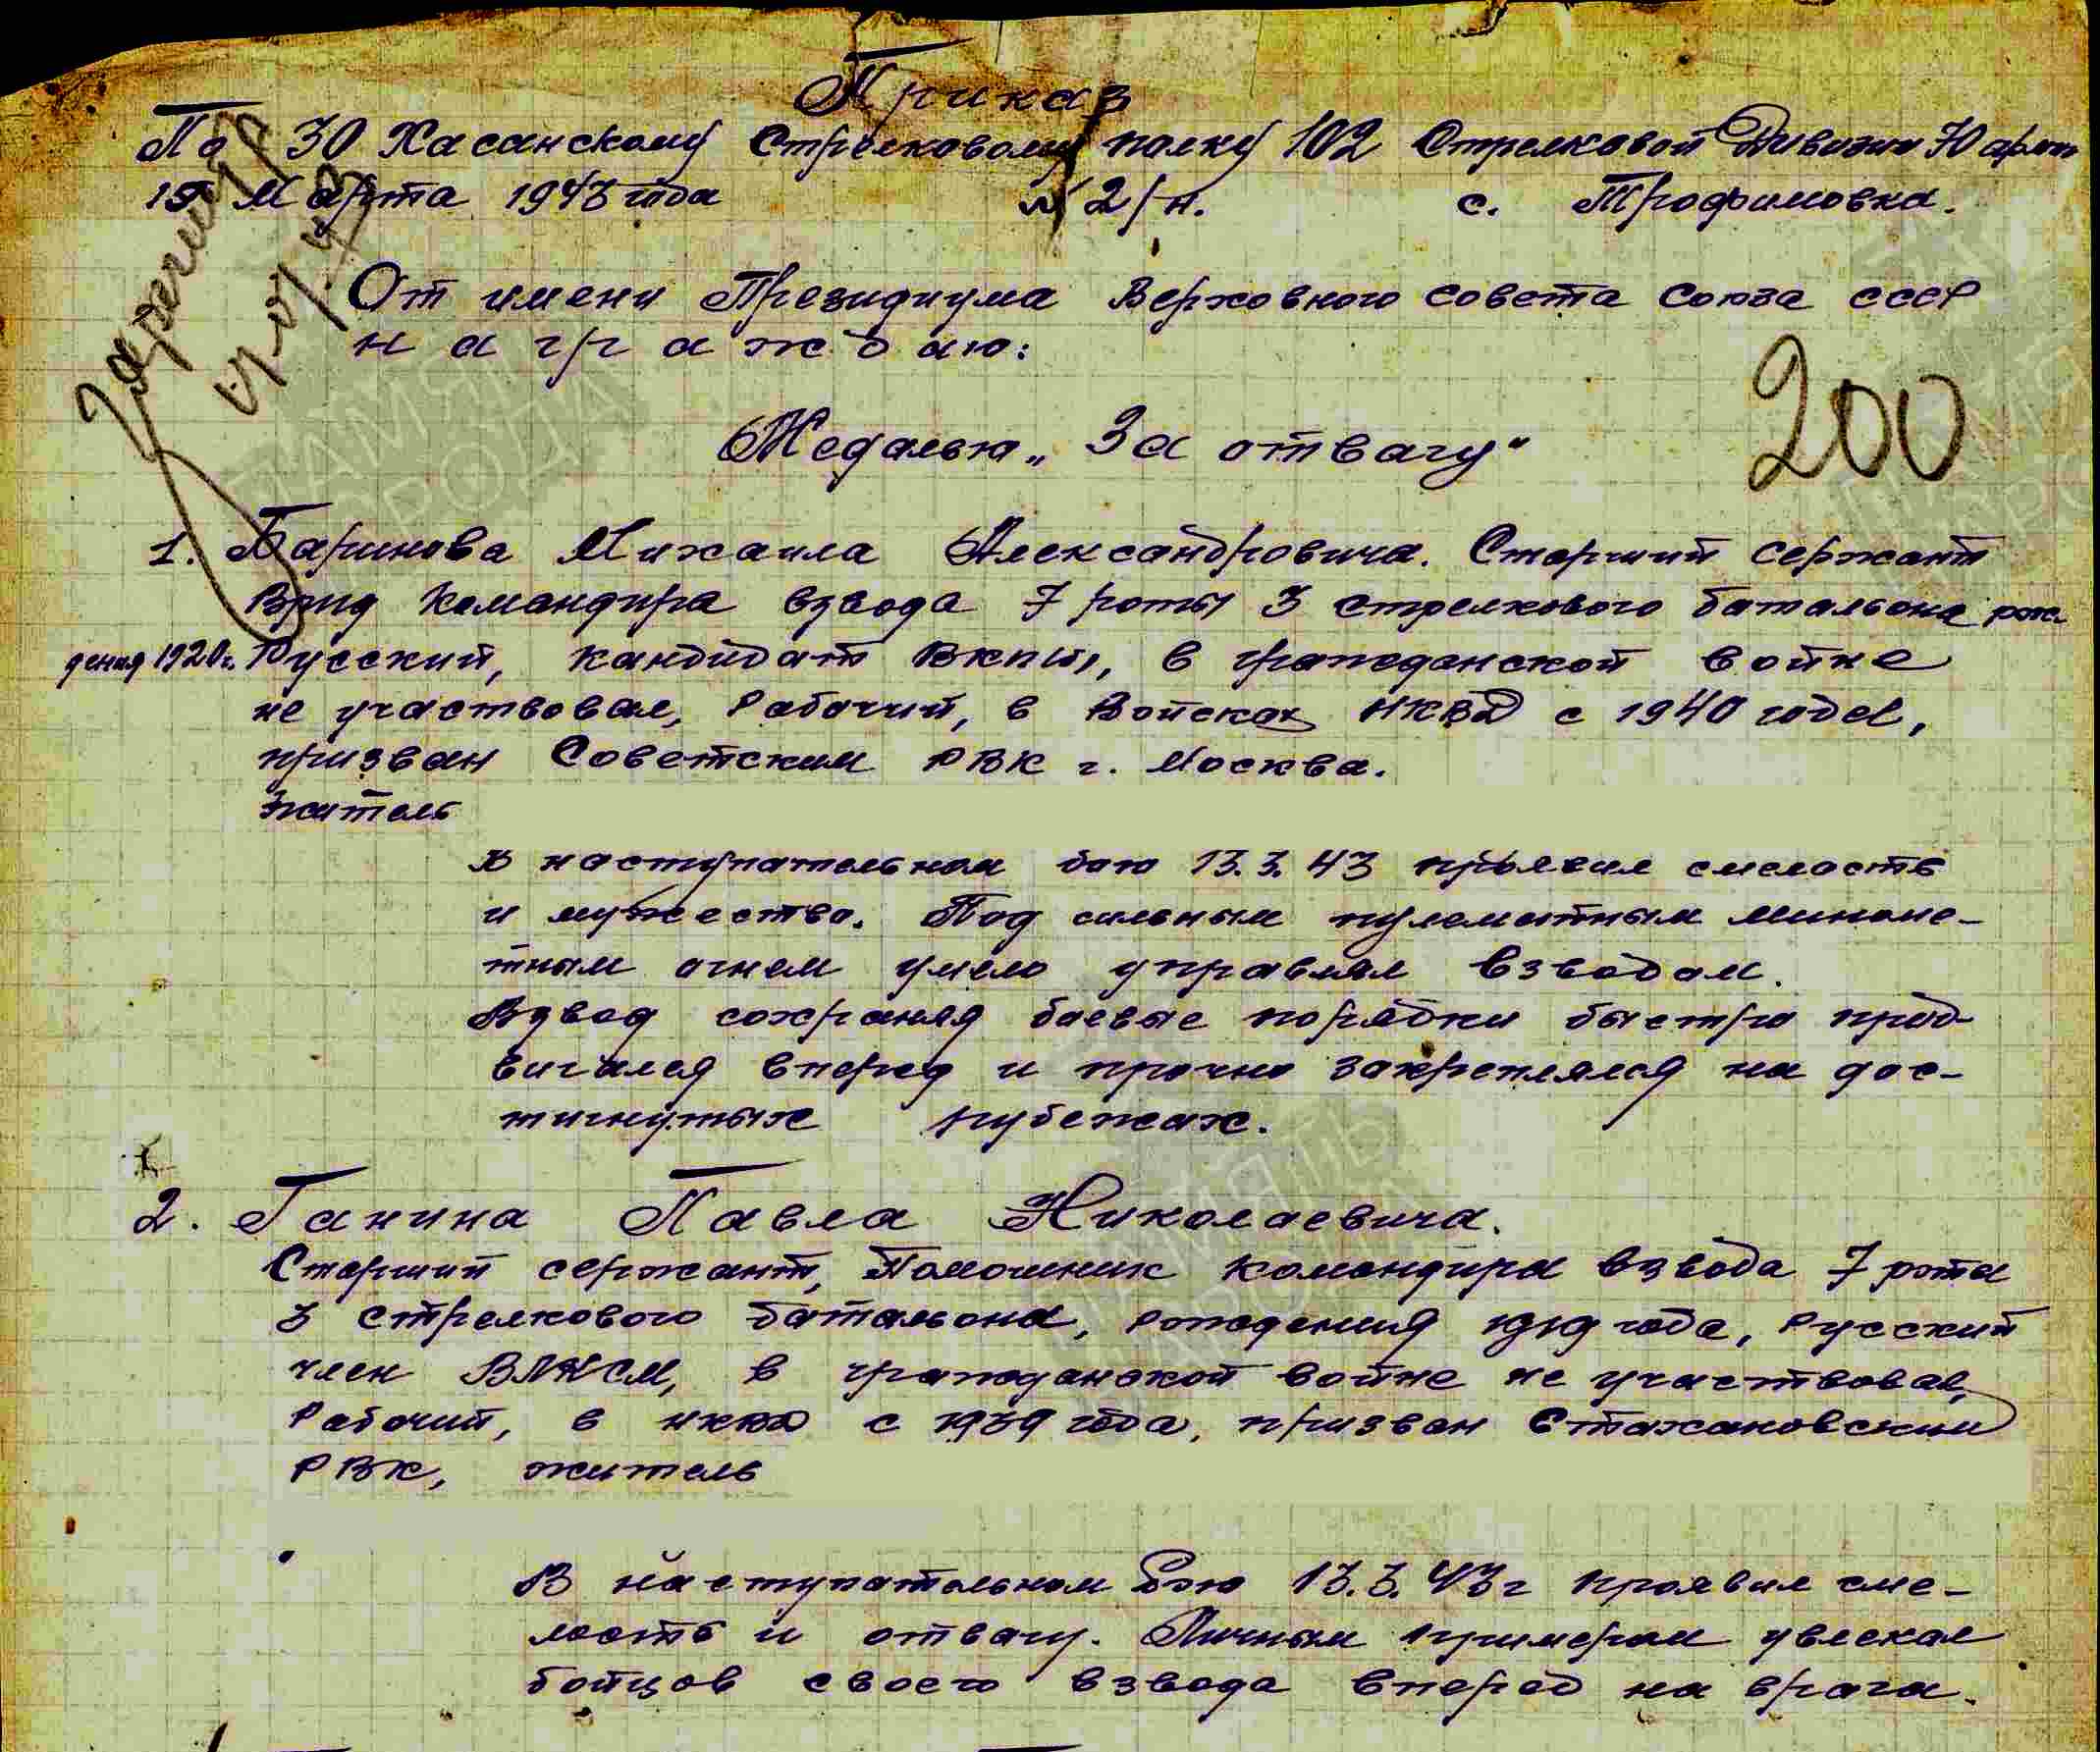 Приказ
По 30 Хасанскому Стрелковому полку 102 Стрелковой Дивизии 70 арм
15 Марта 1943 года № 2/н. с. Трофимовка.
От имени Президиума Верховного Совета Союза СССР
награждаю:
200
Медалью „За отвагу“
1. Баринова Михаила Александровича. Старший сержант
Врид Командира взвода 7 роты 3 стрелкового батальона рож-
дения 1920г. Русский, кандидат ВКП(б), в гражданской войне
не участвовал, Рабочий, в Войсках НКВД с 1940 года,
призван Советским РВК г. Москва.
Житель
В наступательном бою 13.3.43 проявил смелость
и мужество. Под сильным пулеметным миноме-
тным огнем умело управлял взводом.
Взвод сохраняя боевые порядки быстро прод-
вигался вперед и прочно закреплялся на дос-
тигнутых рубежах.
2. Ганина Павла Николаевича.
Старший сержант, Помошник командира взвода 7 рота
3 стрелкового батальона, рождения 1919 года, Русский
член ВЛКСМ, в гражданской войне не участвовал,
Рабочий, в НКВД с 1939 года, призван Стахановским
РВК, житель
В наступательном бою 13.3.43г проявил сме-
лость и отвагу. Личным примером увлекал
бойцов своего взвода вперед на врага.
ПАМЯТЬ
НАРОДА